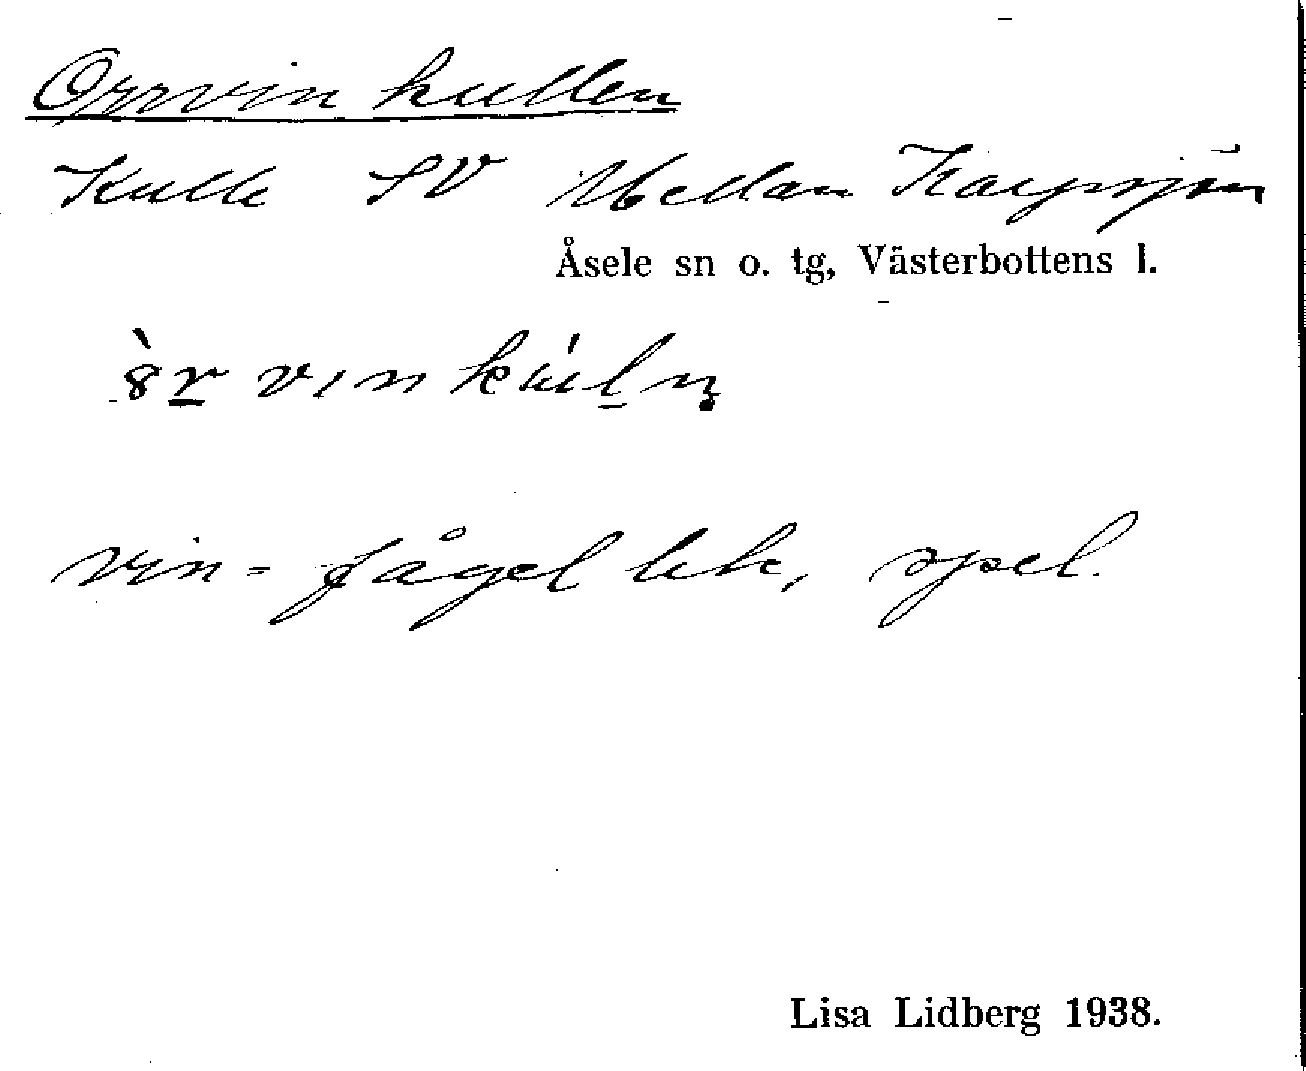 Orrvinkullen
Kulle SV Mellan Karpsjön
Åsele sn o. tg, Västerbottens l.
vin = fågellek, spel.
Lisa Lidberg 1938.